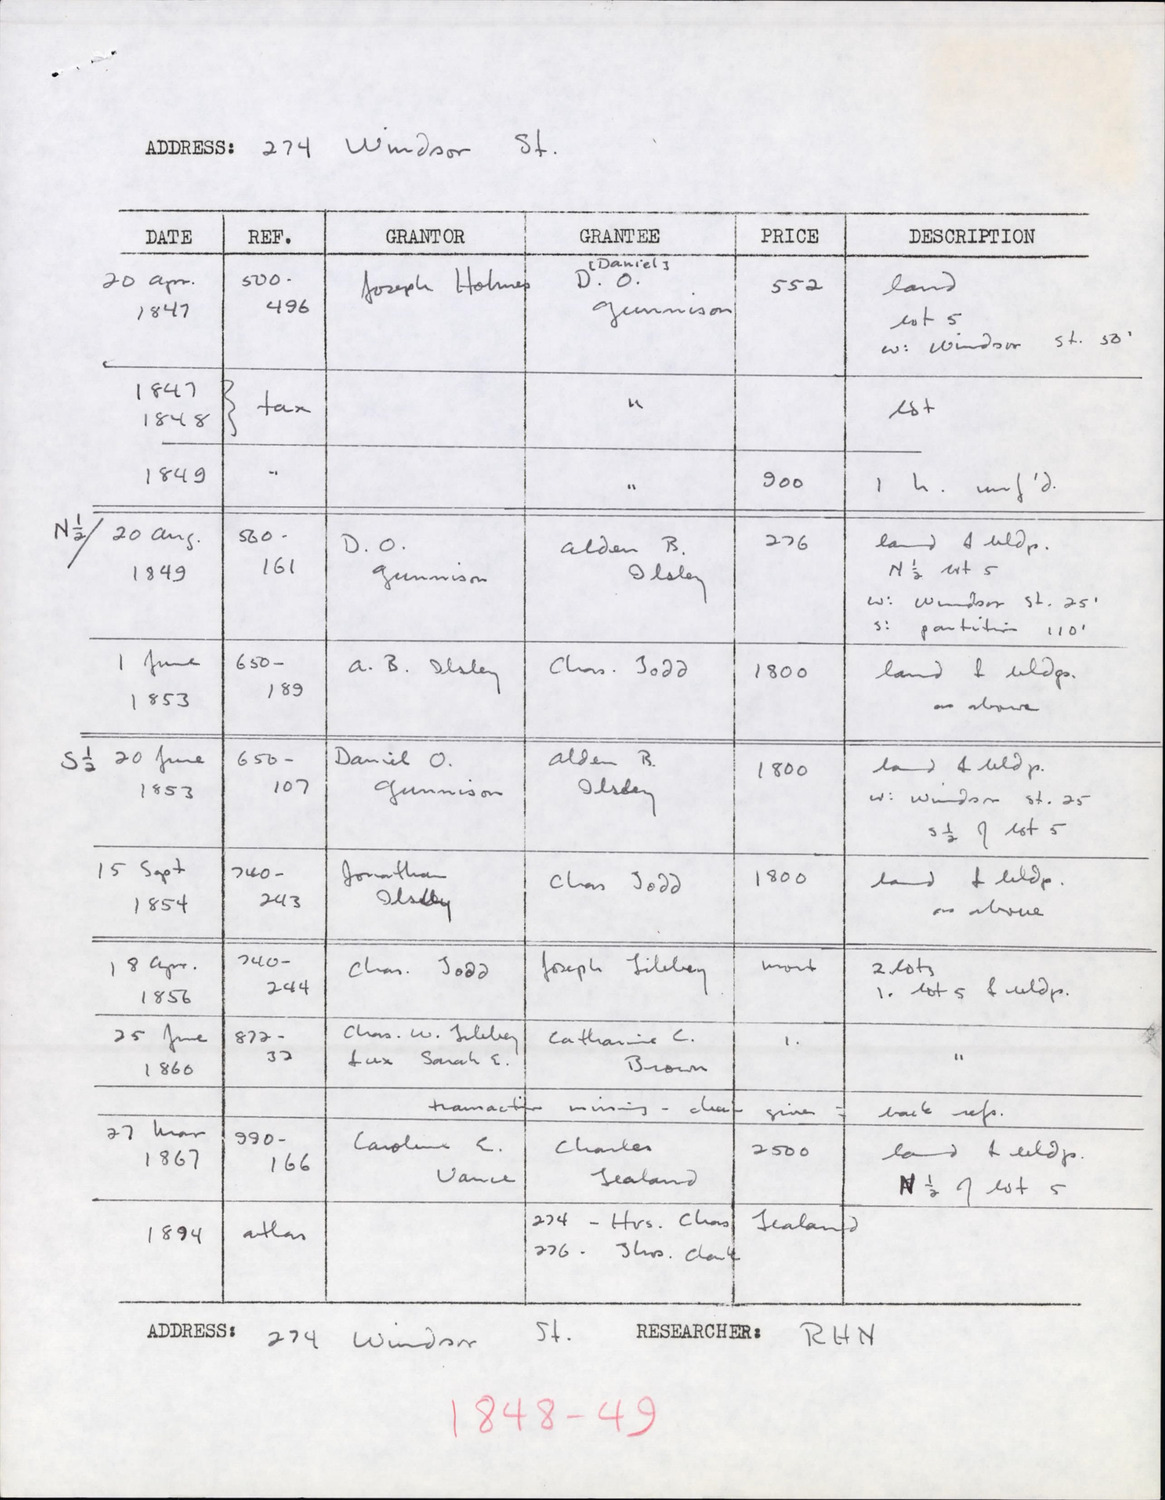 ADDRESS: 274 Windsor St.
DATE REF. GRANTOR GRANTEE PRICE DESCRIPTION
[Daniel]
20 Apr. 500- Joseph Holmes D. O. 552 land
1847 496 Gunnison lot 5
w: Windsor St. 50'
1847
1848 } tax " lot
1849 " " 900 1 h. unf'd.
N½/ 20 Aug. 560- D. O. Alden B. 276 land & bldg.
1849 161 Gunnison Ilsley N ½ lot 5
w: Windsor St. 25'
s: partition 110'
1 June 650- A. B. Ilsley Chas. Todd 1800 land & bldgs.
1853 189 as above
S½ 20 June 650- Daniel O. Alden B. 1800 land & bldg.
1853 107 Gunnison Ilsley w: Windsor St. 25
S ½ of lot 5
15 Sept 740- Jonathan Chas Todd 1800 land & bldg.
1854 243 Ilsley as above
18 Apr. 740- Chas. Todd Joseph mort 2 lots
1856 244 1. lot 5 & bldg.
25 June 872- Chas. W. Catharine C. 1.
1860 32 & ux Sarah E. Brown "
transaction missing - given = back refs.
27 Mar 990- Caroline E. Charles 2500 land & bldg.
1867 166 Vance Sealand N ½ of lot 5
1894 atlas 274 - Hrs. Chas Sealand
276 - Thos. Clark
ADDRESS: 274 Windsor St. RESEARCHER: RHN
1848-49